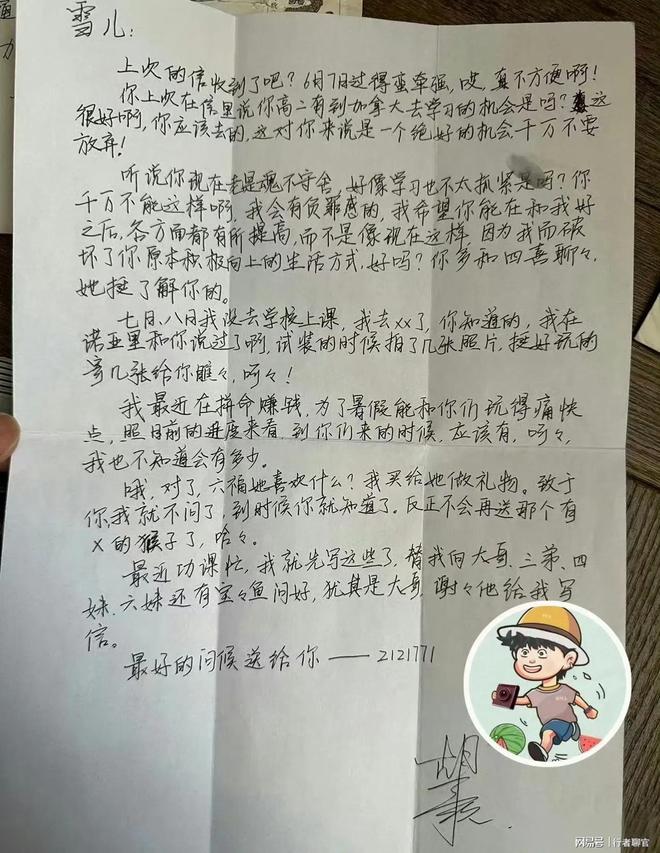 雪儿：
上次的信收到了吧？6月7日过得蛮牵强，哎，真不方便啊！
你上次在信里说你高二有到加拿大去学习的机会是吗？这
很好啊，你应该去的，这对你来说是一个绝好的机会千万不要
放弃！
听说你现在老是魂不守舍，好像学习也不太抓紧是吗？你
千万不能这样啊，我会有负罪感的，我希望你能在和我好
之后，各方面都有所提高，而不是像现在这样，因为我而破
坏了你原本积极向上的生活方式，好吗？你多和四喜聊々，
她挺了解你的。
七日、八日我没去学校上课，我去xx了，你知道的，我在
诺亚里和你说过了啊，试装的时候拍了几张照片，挺好玩的
寄几张给你瞧々，呵々！
我最近在拼命赚钱，为了暑假能和你们玩得痛快
点，照目前的进度来看，到你们来的时候，应该有，呵々，
我也不知道会有多少。
哦，对了，六福她喜欢什么？我买给她做礼物。致于
你，我就不问了，到时候你就知道了。反正不会再送那个有
x的猴子了，哈々。
最近功课忙，我就先写这些了，替我向大哥、三弟、四
妹、六妹还有宝々鱼问好，犹其是大哥，谢々他给我写
信。
最好的问候送给你——2121771
胡
网易号 | 行者聊官